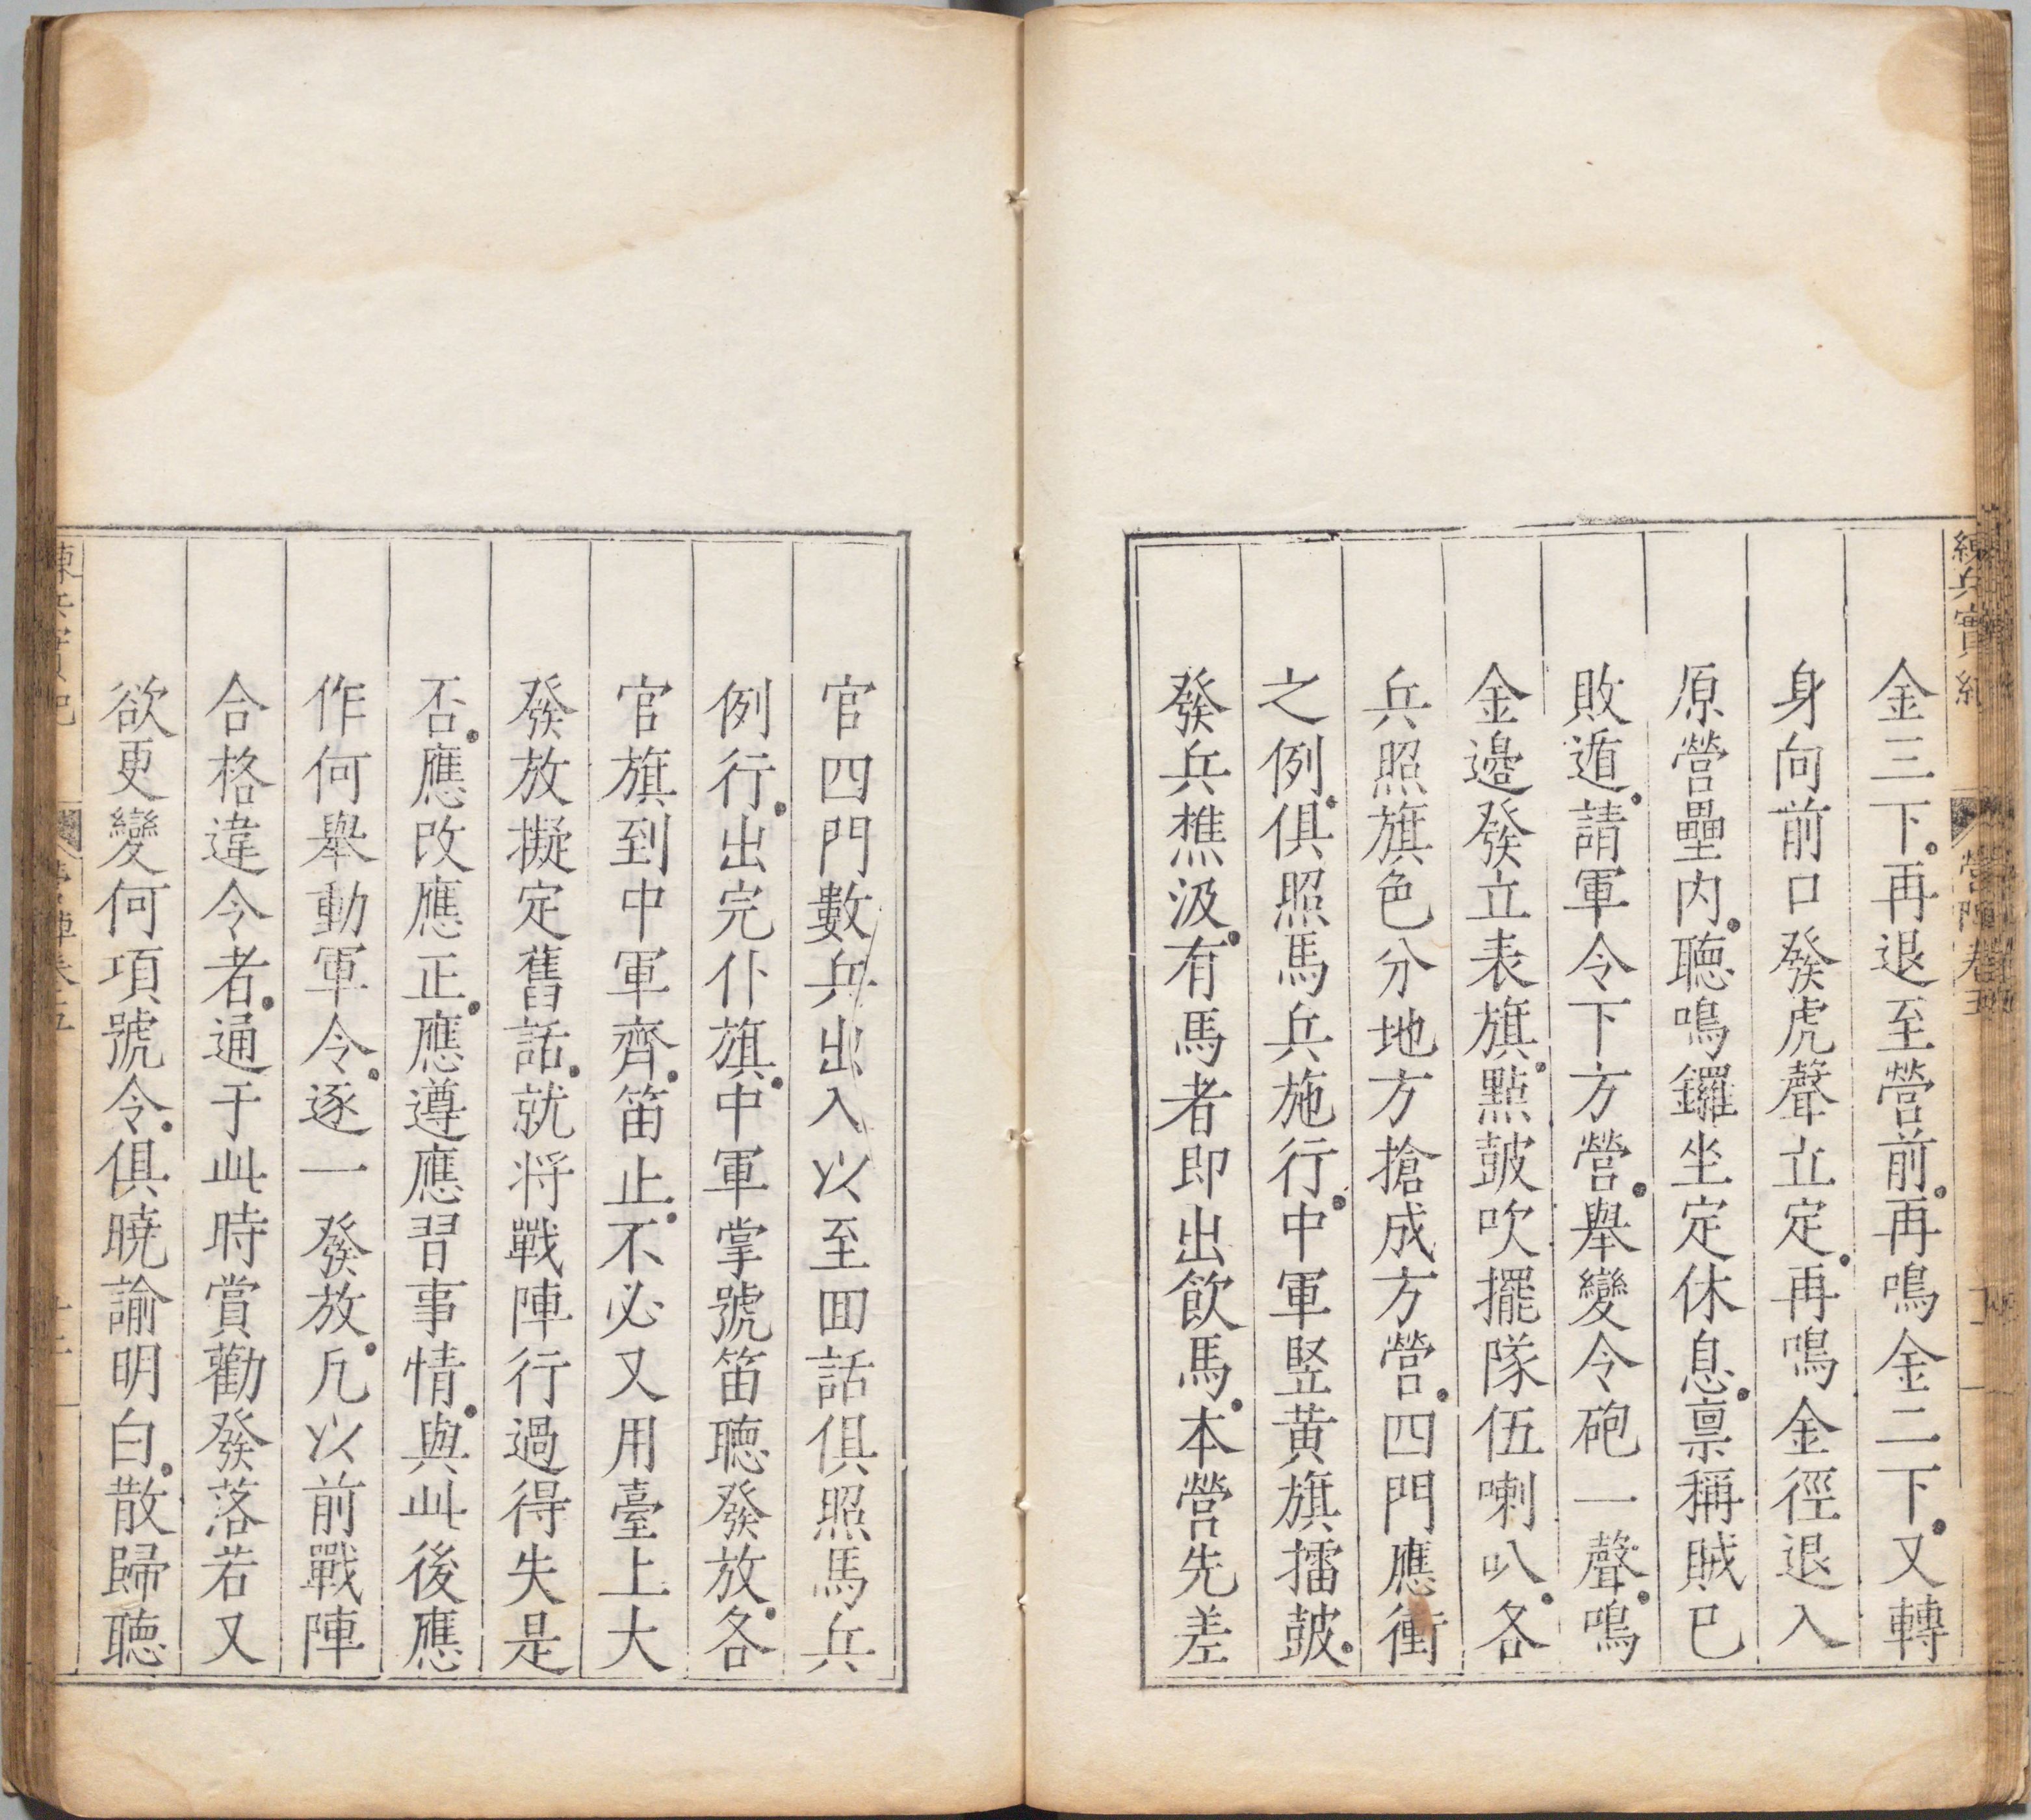 練兵實紀
營陣卷五
金三下再退至營前再鳴金二下又轉
身向前口發虎聲立定再鳴金徑退入
原營壘内聽鳴鑼坐定休息稟稱賊已
敗遁請軍令下方營舉變令砲一聲鳴
金邊發立表旗點皷吹擺隊伍喇叭各
兵照旗色分地方搶成方營四門應衝
之例俱照馬兵施行中軍竪黄旗擂皷
發兵樵汲有馬者即出飲馬本營先差
官四門數兵出入以至囬話俱照馬兵
例行出完仆旗中軍掌號笛聽發放各
官旗到中軍齊笛止不必又用臺上大
發放擬定舊話就将戰陣行過得失是
否應改應正應遵應習事情與此後應
作何舉動軍令逐一發放凢以前戰陣
合格違令者通于此時賞勸發落若又
欲更變何項號令俱曉諭明白散歸聽